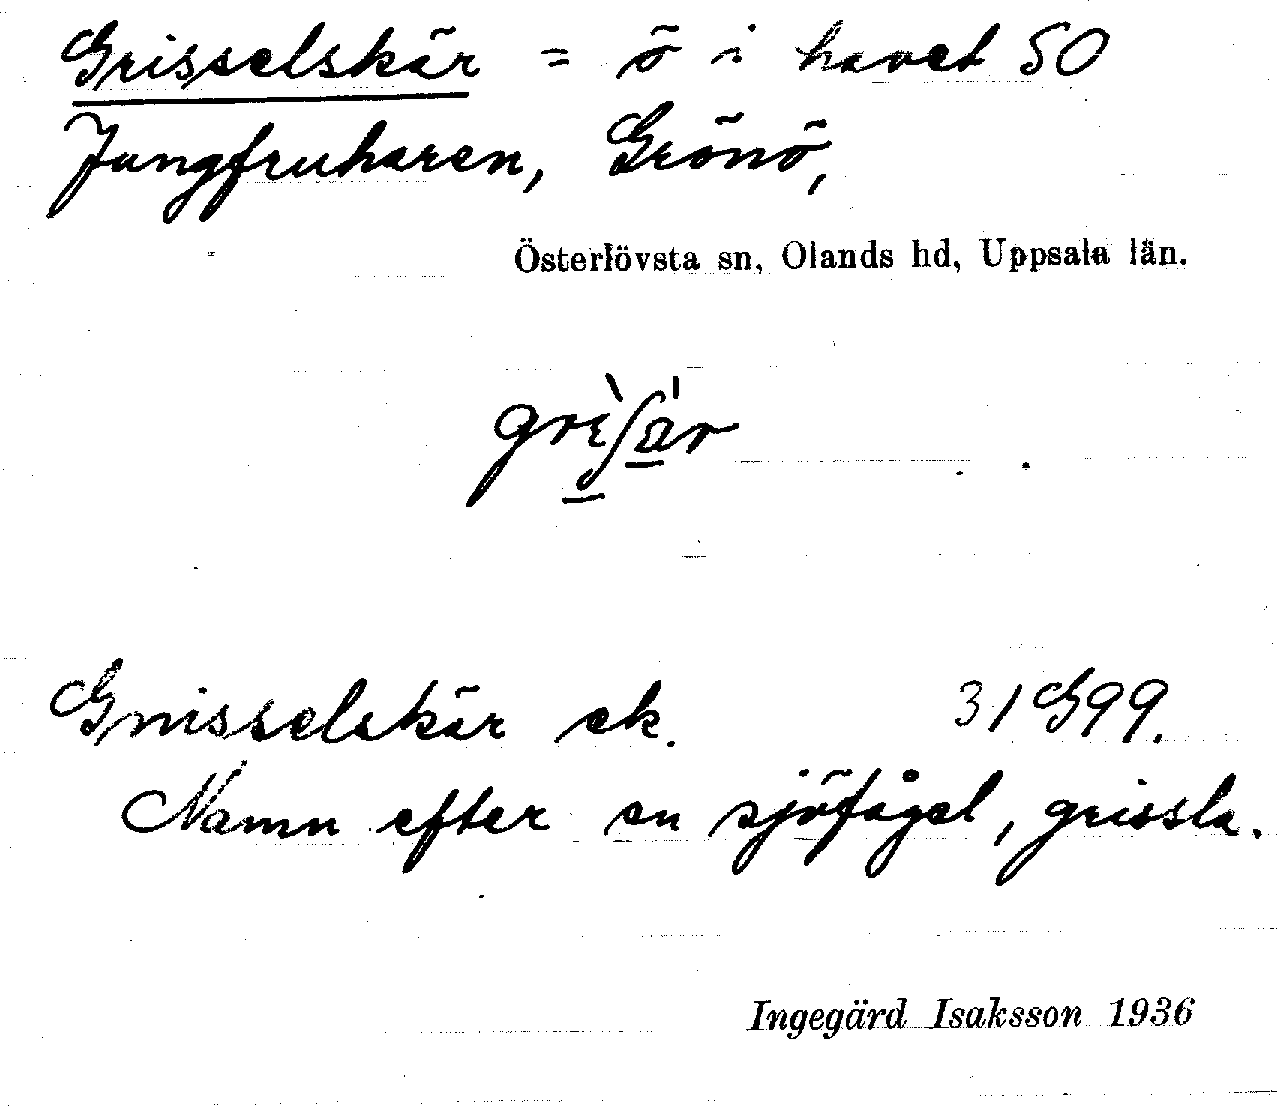 Grisselskär = ö i havet SO
Jungfruharen, Grönö,
Österlövsta sn, Olands hd, Uppsala län.
Gnisselskär ek. 31G99.
Namn efter en sjöfågel, grissla.
Ingegärd Isaksson 1936